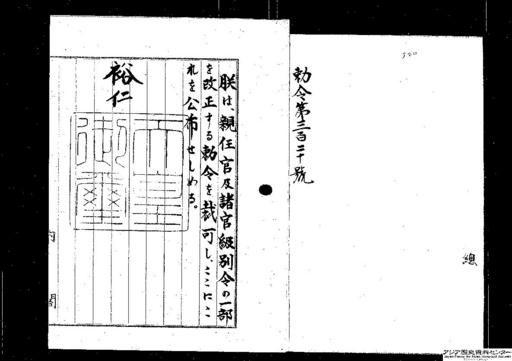 320
勅令第三百二十號
總
朕は、親任官及諸官級別令の一部
を改正する勅令を裁可し、ここにこ
れを公布せしめる。
裕仁
天皇御璽
内閣
アジア歴史資料センター